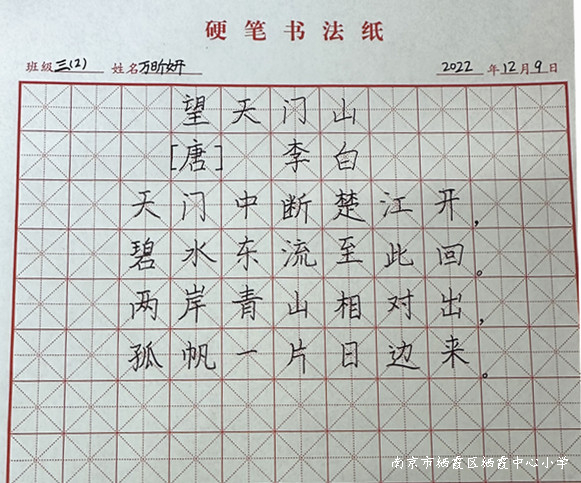 硬笔书法纸
班级三(2) 姓名万昕妍 2022年12月9日
望天门山
[唐] 李白
天门中断楚江开，
碧水东流至此回。
两岸青山相对出，
孤帆一片日边来。
南京市栖霞区栖霞中心小学